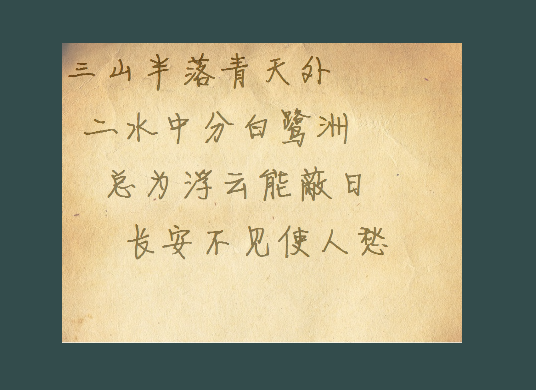 三山半落青天外
二水中分白鹭洲
总为浮云能蔽日
长安不见使人愁